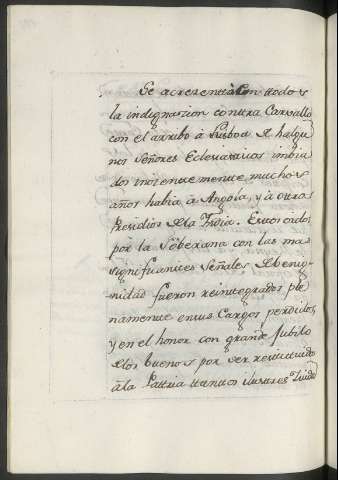 Se acrecentò con ttodos
la indignazion conttra Carvallo
con el arribo à Lisboa de halgu
nos Señores Eclesiasticos imbia
dos inozentementte muchos
años habia à Angola, y à ottros
Presidios de la India. Estos oidos
por la Soberana con las mas
significanttes Señales de benig-
nidad fueron reintegrados ple
namente en sus Cargos perdidos,
y en el honor con grande Jubilo
de los buenos por ver resttituido
à la Pattria ttanttos ilustres